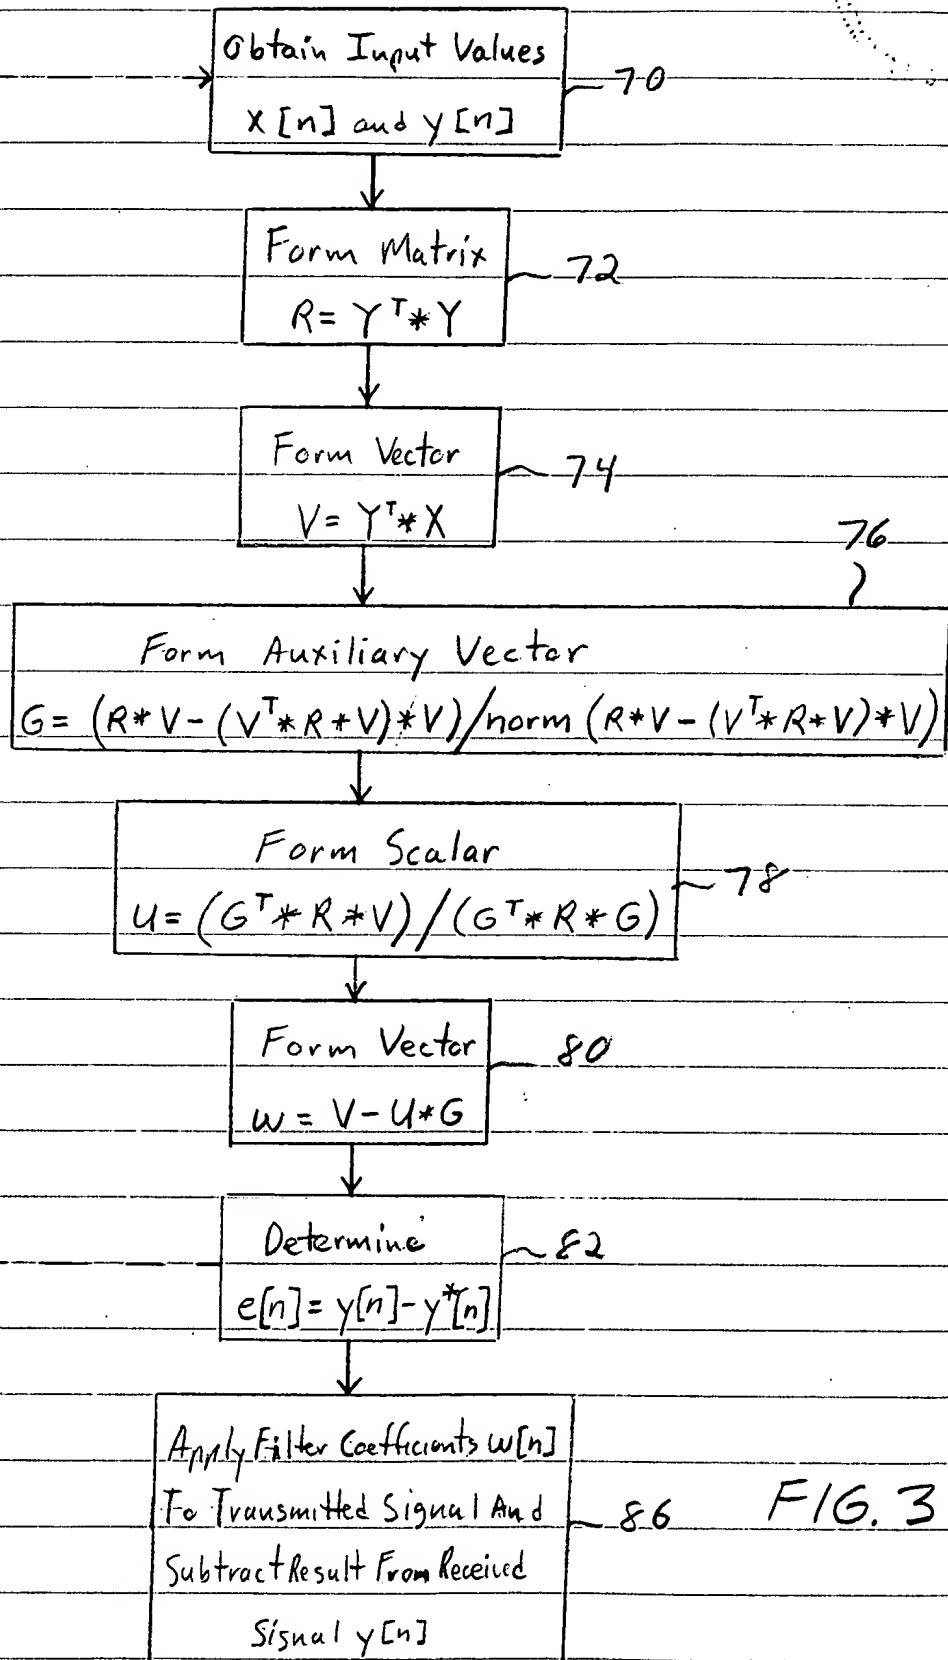 Obtain Input Values
x[n] and y[n]
70
Form Matrix
R= Y^T * Y
72
Form Vector
V= Y^T * X
74
76
Form Auxiliary Vector
G= (R*V-(V^T*R*V)*V)/norm (R*V-(V^T*R*V)*V)
Form Scalar
U= (G^T * R * V)/(G^T * R * G)
78
Form Vector
w = V-U*G
80
Determine
e[n]= y[n]-y*[n]
82
Apply Filter Coefficients w[n]
To Transmitted Signal And
Subtract Result From Received
Signal y[n]
86
FIG. 3